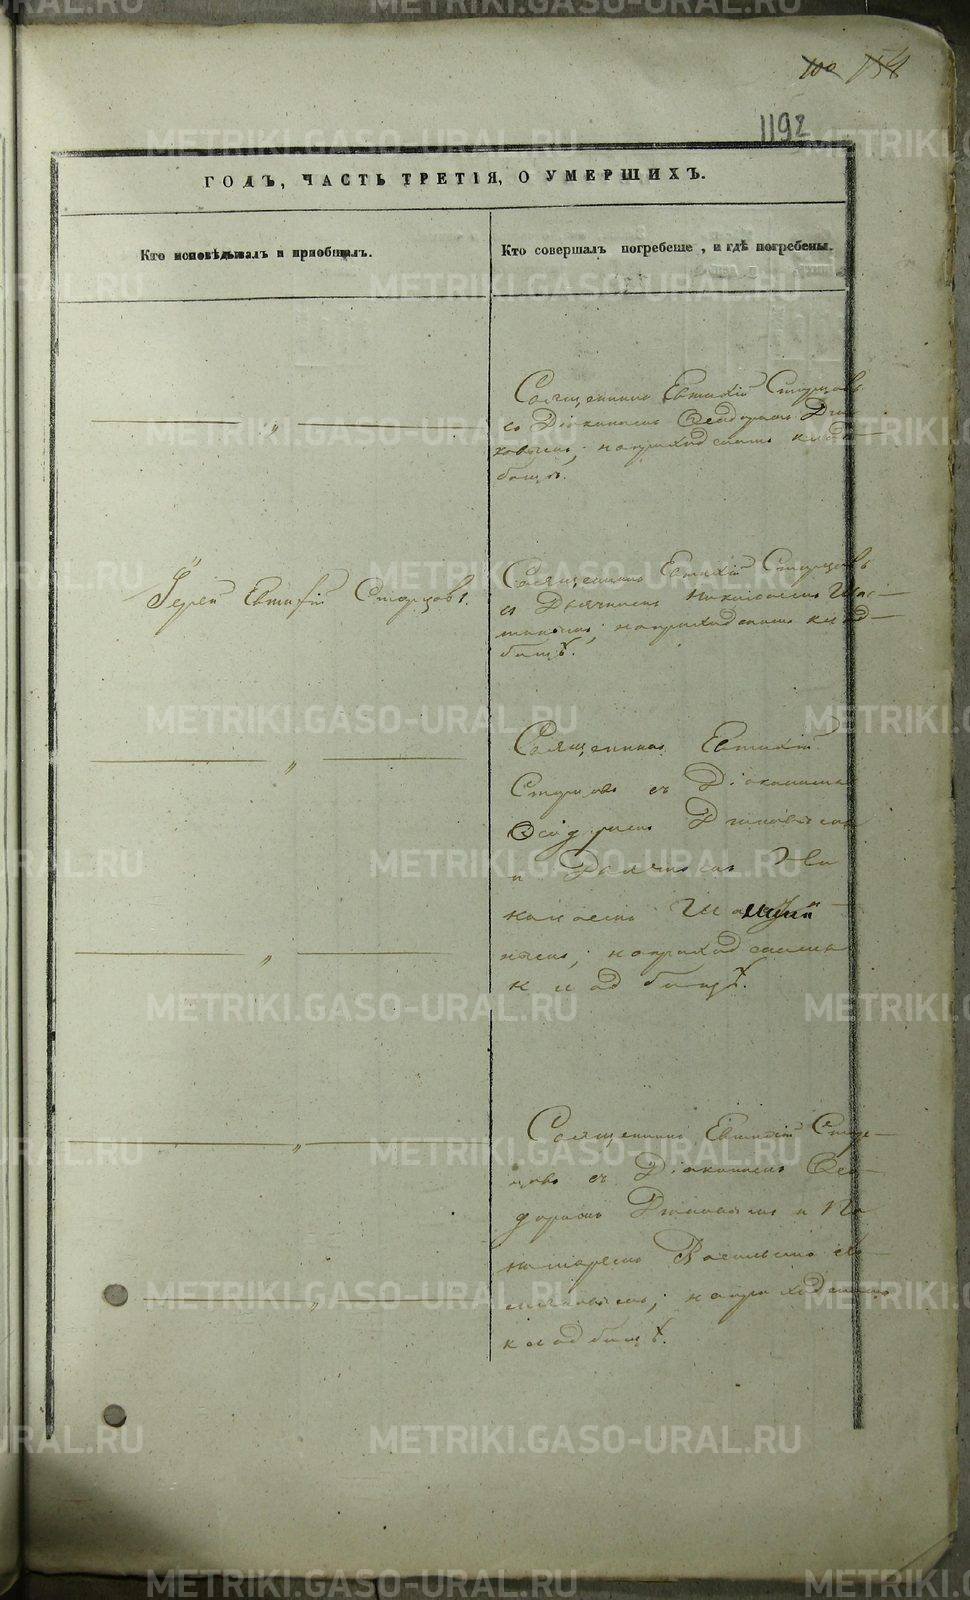 100 154
1192
ГОДЪ, ЧАСТЬ ТРЕТІЯ, О УМЕРШИХЪ.
Кто исповѣдывалъ и пріобщалъ.
Кто совершалъ погребеніе, и гдѣ погребены.
Священникъ Евтихій Сторцовъ
со Діакономъ Ѳеодоромъ
на приходскомъ клад
бищѣ.
Іерей Евтихій Сторцовъ.
Священникъ Евтихій Сторцовъ
съ Дьячкомъ Николаемъ
на приходскомъ клад
бищѣ.
Священникъ Евтихій
Сторцовъ съ Діакономъ
Ѳеодоромъ
и Дьячкомъ Ни
колаемъ
на приходскомъ
кладбищѣ.
Священникъ Евтихій Стор
цовъ съ Діакономъ Ѳео
доромъ и По
номаремъ Васильемъ
на приходскомъ
кладбищѣ.
METRIKI.GASO-URAL.RU